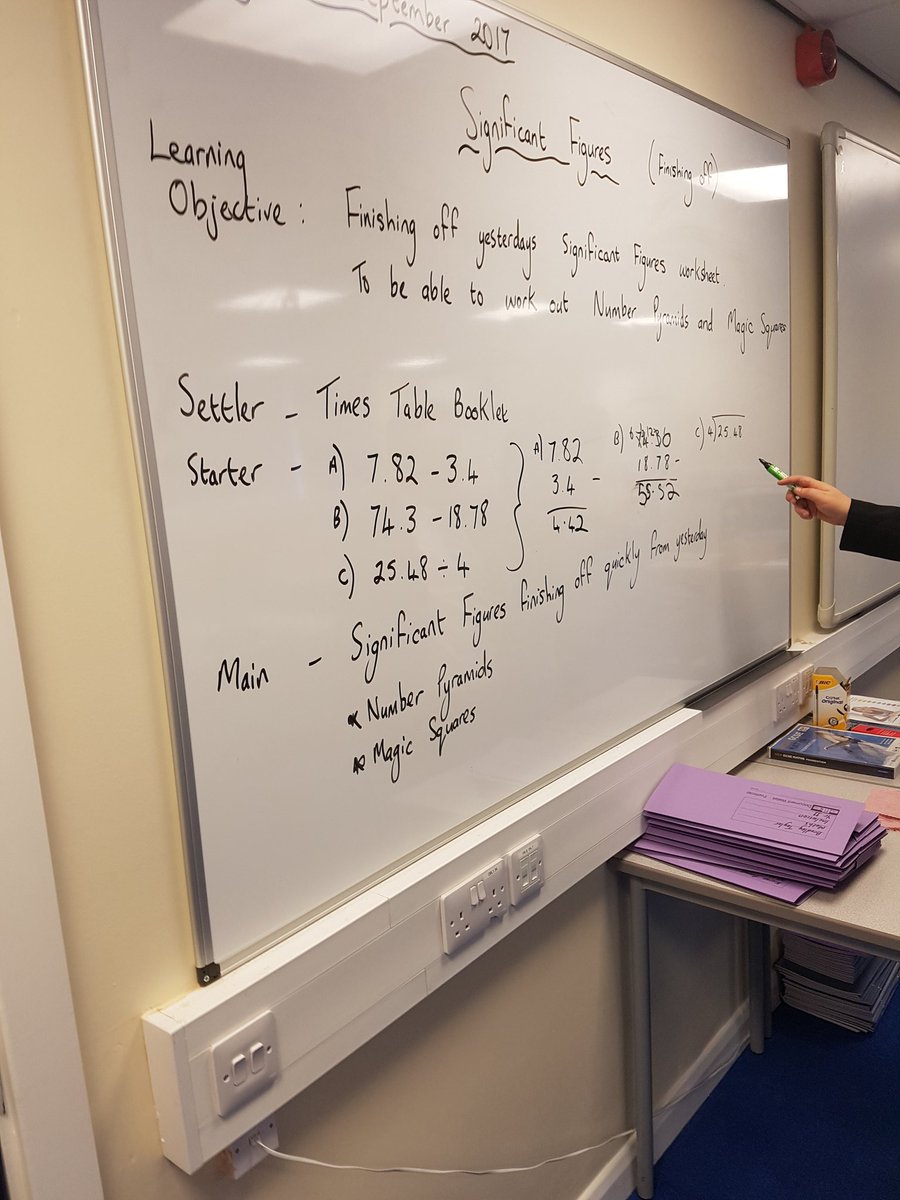 September 2017
Significant Figures (Finishing off)
Learning
Objective : Finishing off yesterdays Significant Figures worksheet.
To be able to work out Number Pyramids and Magic Squares
Settler - Times Table Booklet
Starter - A) 7.82 - 3.4
B) 74.3 - 18.78
C) 25.48 ÷ 4
A) 7.82
3.4 -
4.42
B)
18.78 -
55.52
C) 4)25.48
Main - Significant Figures finishing off quickly from yesterday
* Number Pyramids
* Magic Squares
BIC
Cristal
Original
Bradley Taylor
Maths